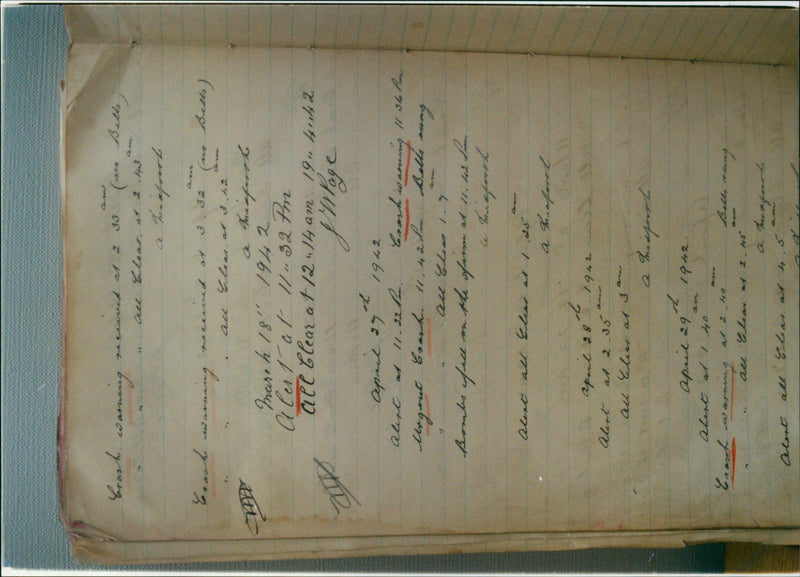 Crash warning received at 2 33 am (no Bells)
" " . All Clear at 2.43 am
A Midforth
Crash warning received at 3 32 am (no Bells)
" " . All Clear at 3.42 am
A Midforth
March 18" 1942
Alert at 11" 32 Pm
All Clear at 12"14 am 19" 4"42
J W Page
April 27th 1942
Alert at 11.22 Pm Crash warning 11 36 Pm
Urgent Crash 11.42 Pm Bells rung
" " All Clear 1.7 am
Bombs fell on the at 11.42 Pm
A Midforth
Alert all Clear at 1.25 am
A Midforth
April 28th 1942
Alert at 2.35 am
All Clear at 3 am
A Midforth
April 29th 1942
Alert at 1.40 am
Crash warning at 2.40 am Bells rung
" All Clear at 2.45 am
A Midforth
Alert all Clear at 4.5 am